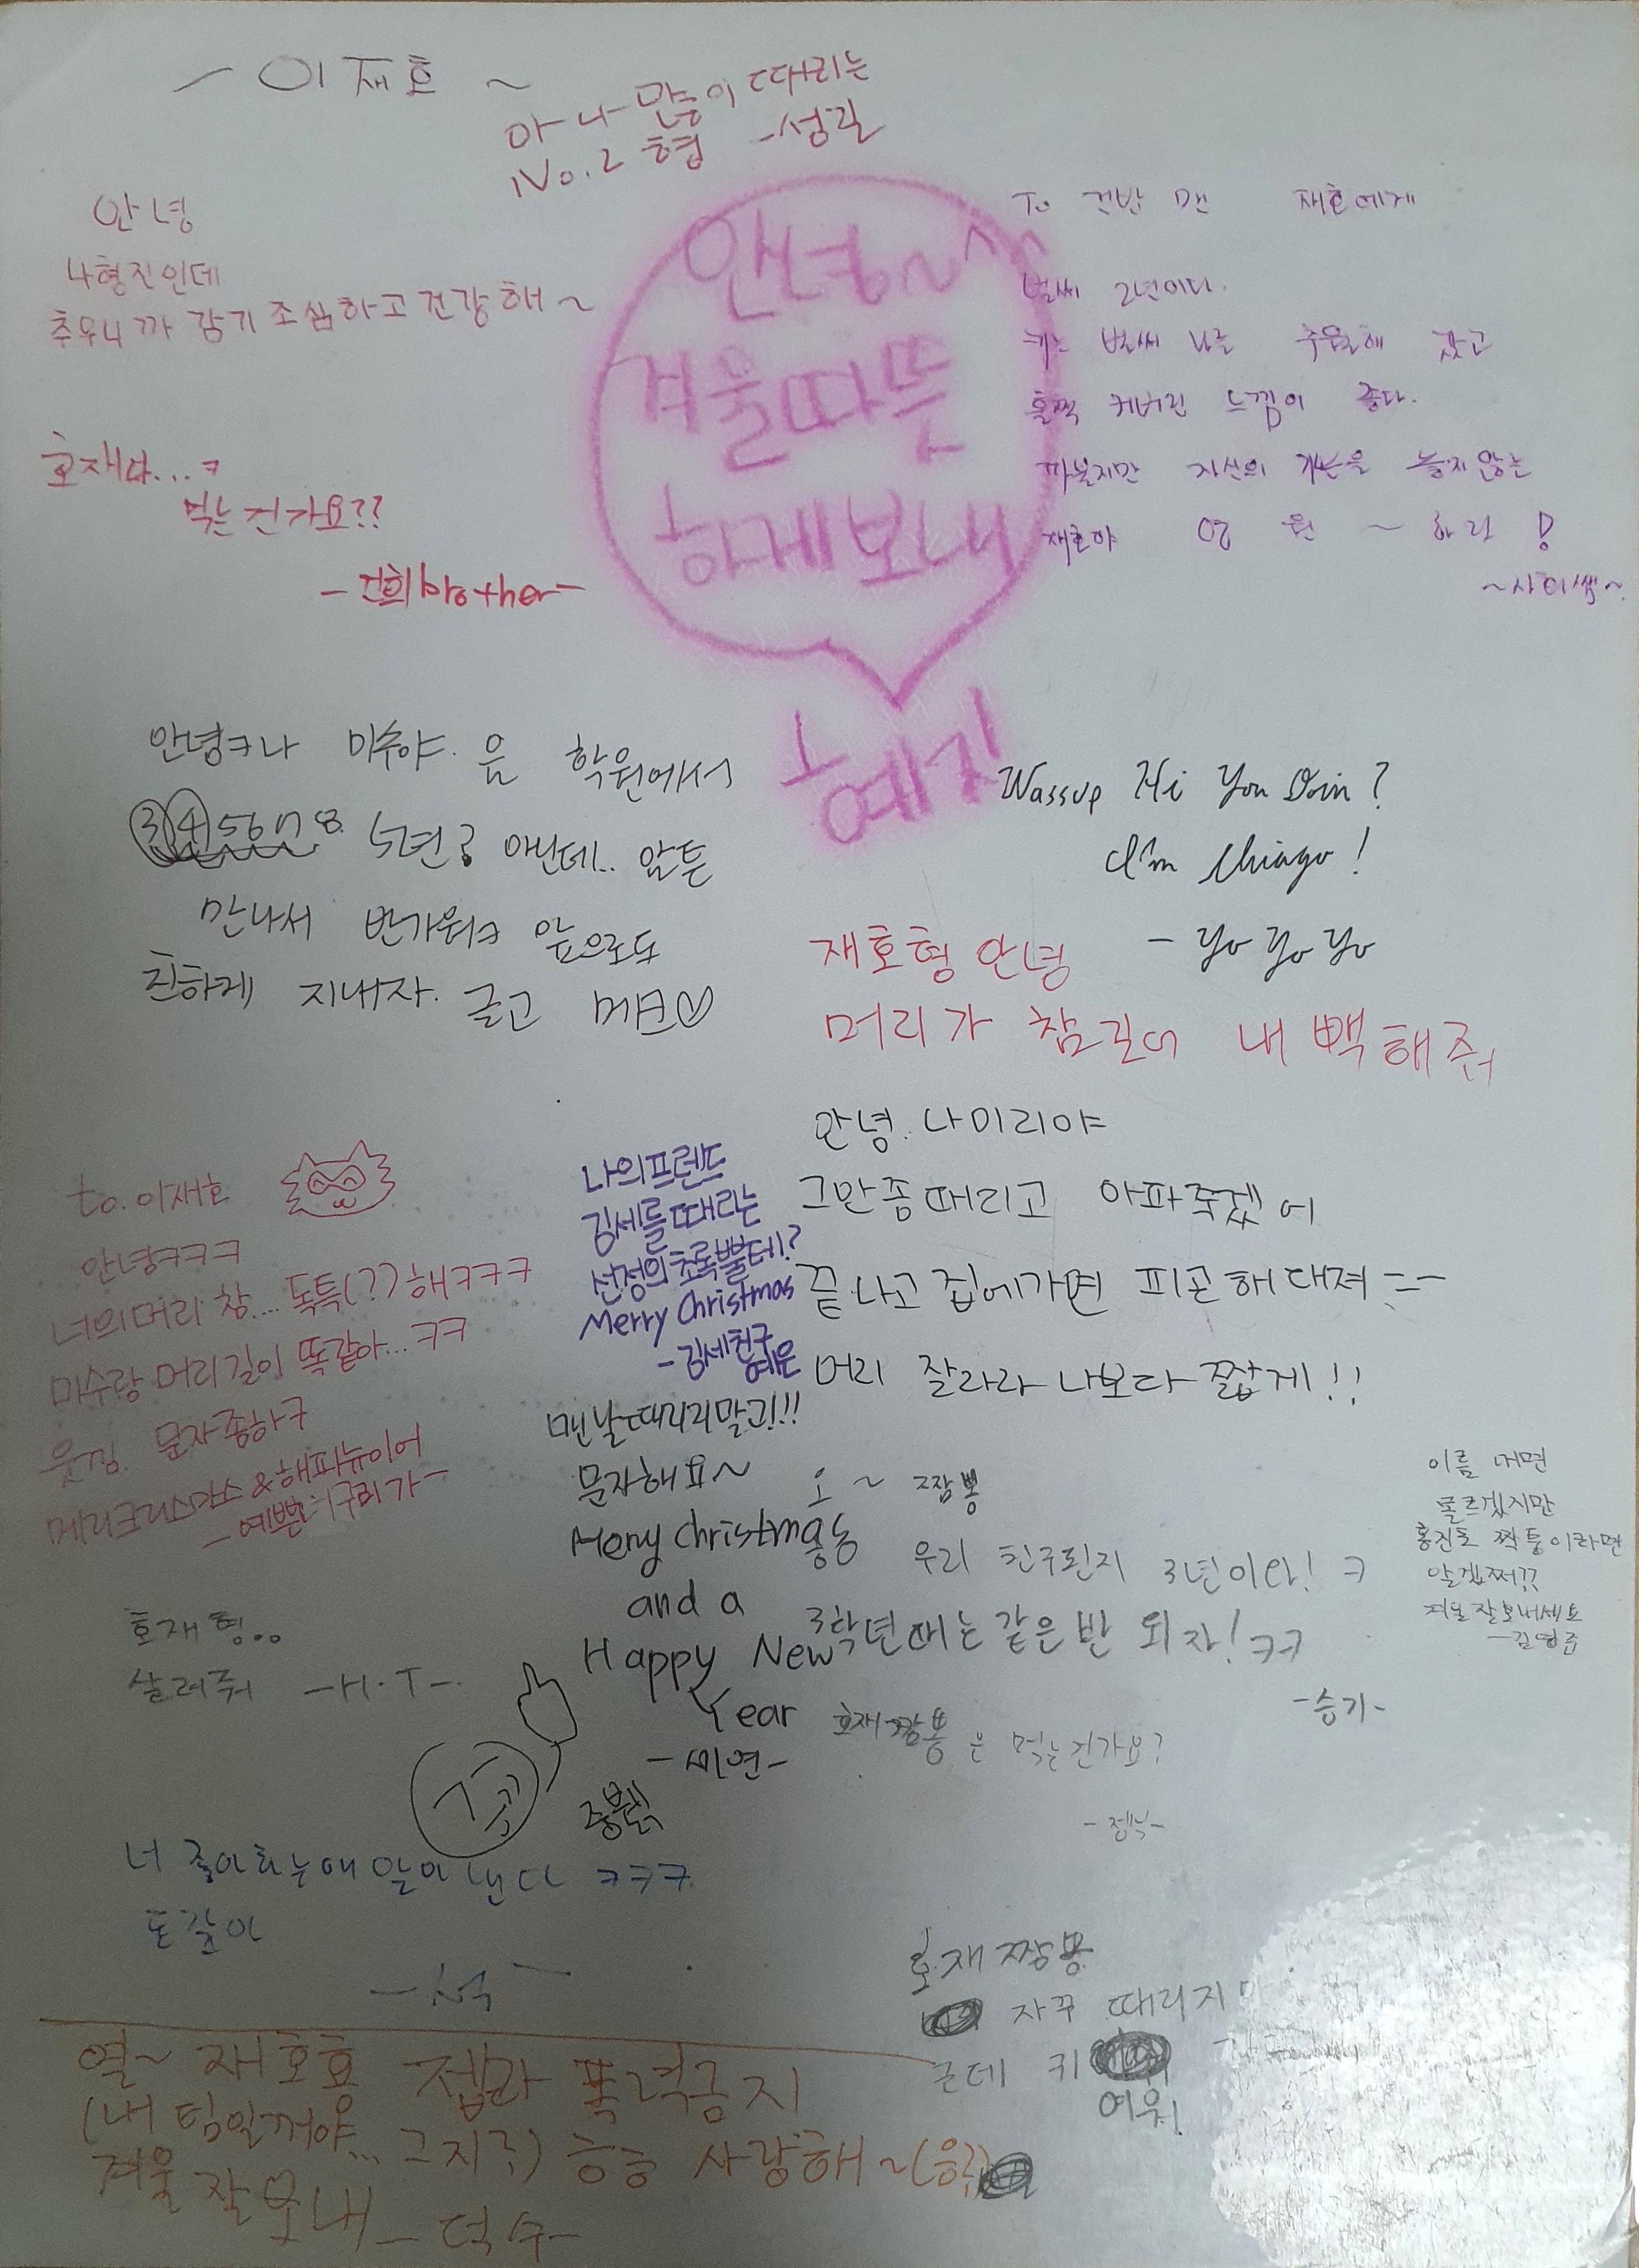 ~ 이재호 ~
아 나 많이 때리는
No.2 형 -성길
안녕
나형진인데
추우니까 감기 조심하고 건강해~
호재다...ㅋ
먹는건가요??
-건희brother-
안녕~^^
겨울따뜻
하게보내
예지
To 건방 맨 재호에게
벌써 2년이다.
키는 벌써 나를 추월해 갔고
훌쩍 커버린 느낌이 좋다.
까불지만 자신의 개념을 놓지않는
재호야
~사이쌤~
안녕ㅋ나 미수야. 음 학원에서
③④5678 5년? 아닌데.. 암튼
만나서 반가워ㅋ 앞으로도
친하게 지내자. 글고 메크♡
Wassup Hi You Doin?
I'm
- yo yo yo
재호형 안녕
머리가 참길어 내 빽해줘
안녕. 나미리야
그만좀때리고 아파죽겠어
끝나고 집에가면 피곤해대져=-
머리 잘라라 나보다 짧게!!
to. 이재호
안녕ㅋㅋㅋ
너의머리 참... 독특(??)해ㅋㅋㅋ
미수랑 머리길이 똑같아...ㅋㅋ
웃겨. 문자좀하구
메리크리스마스&해피뉴이어
-예쁜 구리가-
나의프렌드
김세를때리는
선정의초록뿔테!?
Merry Christmas
-김세친구
예은
맨날때리지말고!!!
문자해요~
Merry Christmas
and a
Happy New
Year
-미연-
오~ 짬뽕
우리 친구된지 3년이야! ㅋ
3학년때는같은반 되자!ㅋㅋ
-승기-
이름 대면
모르겠지만
홍진호 짝퉁이라면
알겠쩌??
겨울잘보내세요
-김영준
호재형..
살려줘 -H.T-
호재짬뽕은 먹는건가요?
너 좋아하는애 알아낸다 ㅋㅋㅋ
똑같아
-석-
호재짬뽕
자꾸 때리지
근데 키
여워!
열~ 재호호 젭라 폭력금지
(내 팀일꺼야... 그지?) ㅎㅎ 사랑해~(응?)
겨울잘보내 -덕수-